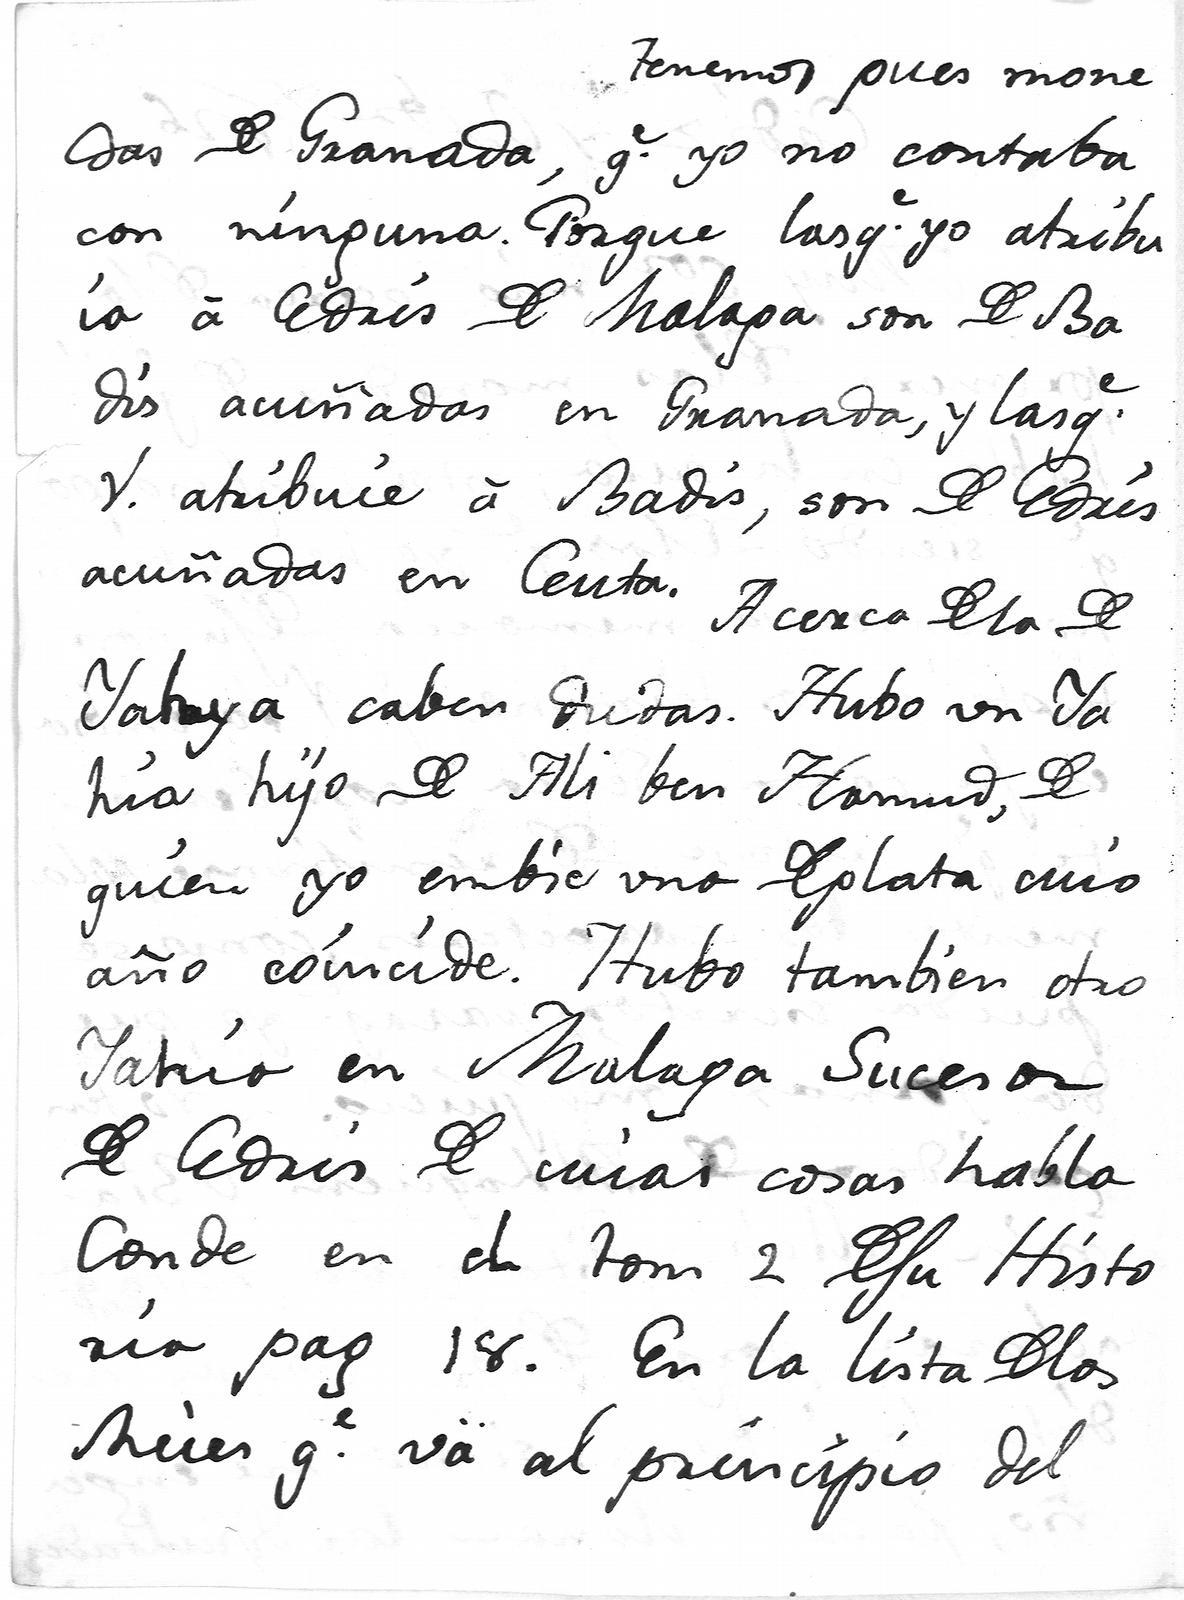 Tenemos pues mone
das de Granada, q.e yo no contaba
con ninguna. Porque las q.e yo atribu
ia à Edris de Malaga son de Ba
dis acuñadas en Granada, y las q.e
V. atribuie à Badis, son de Edris
acuñadas en Ceuta.
Acerca de la de
Yahya caben dudas. Hubo un Ya
hia hijo de Ali ben Hamud, de
quien yo embie una de plata cuio
año coincide. Hubo tambien otro
Yahia en Malaga Sucesor
de Edris de cuias cosas habla
Conde en el tom 2 de su Histo
ria pag 18. En la lista de los
Reies q.e và al principio del